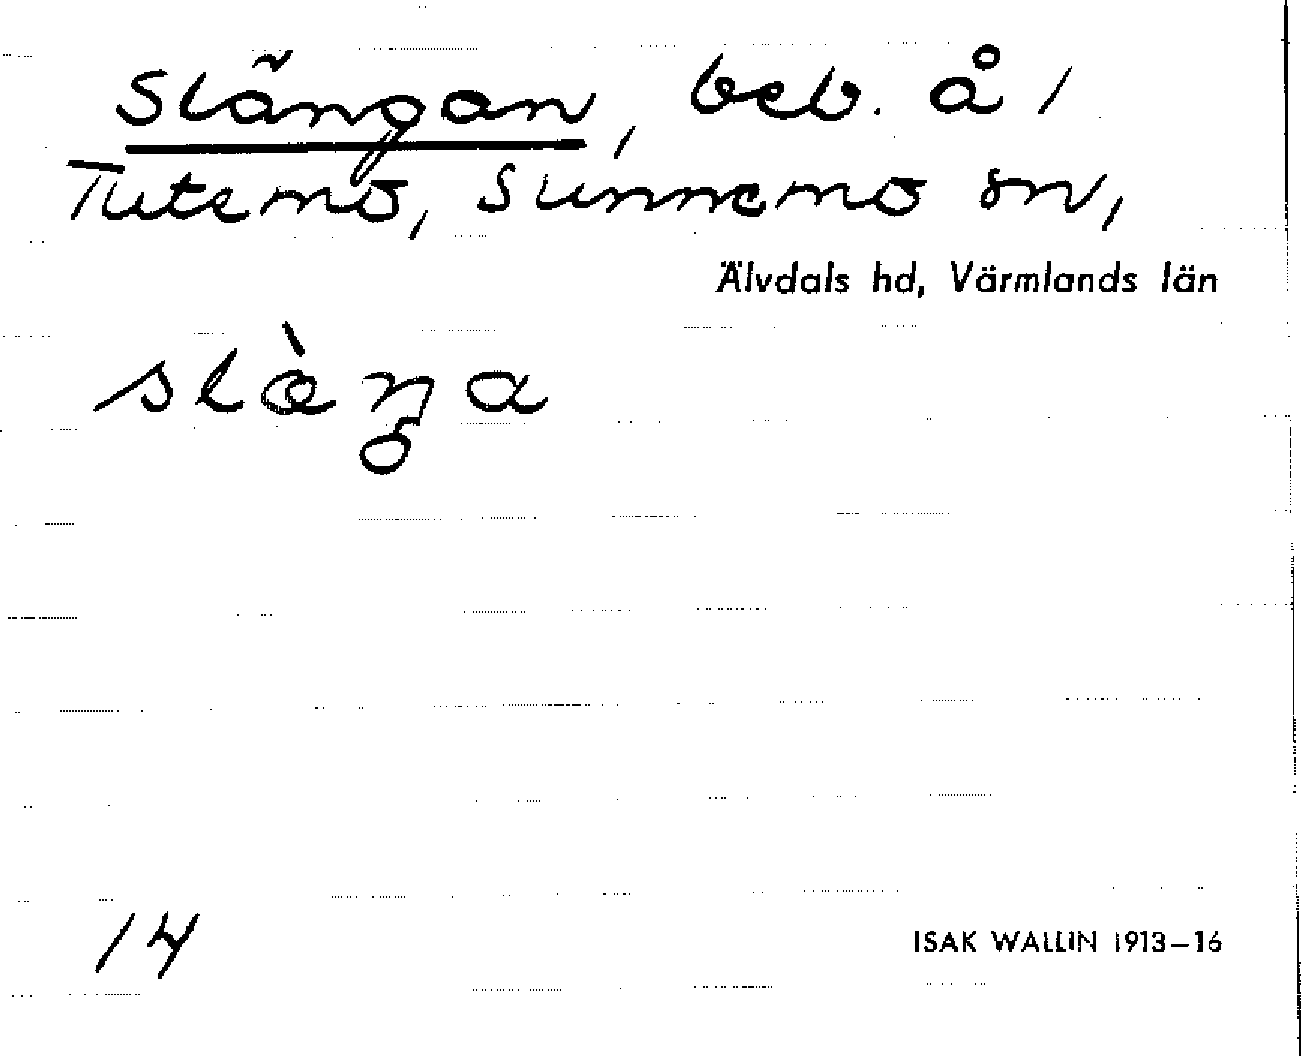 Slängan, beb. å /
Tutemo, Sunnemo sn,
Älvdals hd, Värmlands län
slàŋa
14
ISAK WALLIN 1913–16